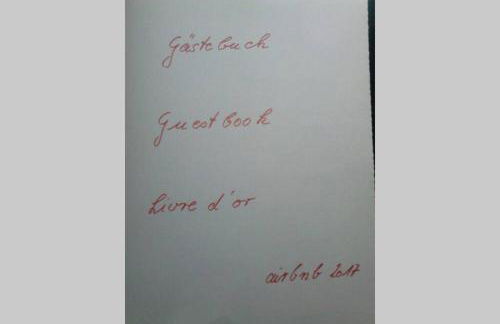 Gästebuch
Guestbook
Livre d'or
airbnb 2017